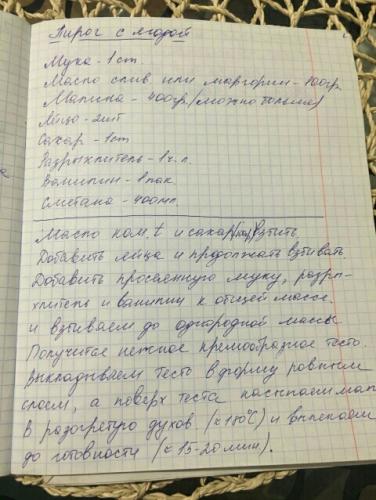 Пирог с ягодой
Мука - 1 ст.
Масло слив. или маргарин - 100гр.
Малина - 400гр. (можно больше)
Яйцо - 2шт
Сахар - 1ст
Разрыхлитель - 1 ч. л.
Ванилин - 1 пак.
Сметана - 400мл.
Масло ком. t и сахар взбить
Добавить яйца и продолжать взбивать
Добавить просеянную муку, разры-
хлитель и ванилин к общей массе.
и взбиваем до однородной массы
Получится нежное кремообразное тесто.
Выкладываем тесто в форму ровным
слоем, а поверх теста насыпаем мал
В разогретую духов. (≈180°C) и выпекаем
до готовности (≈ 15-20 мин).